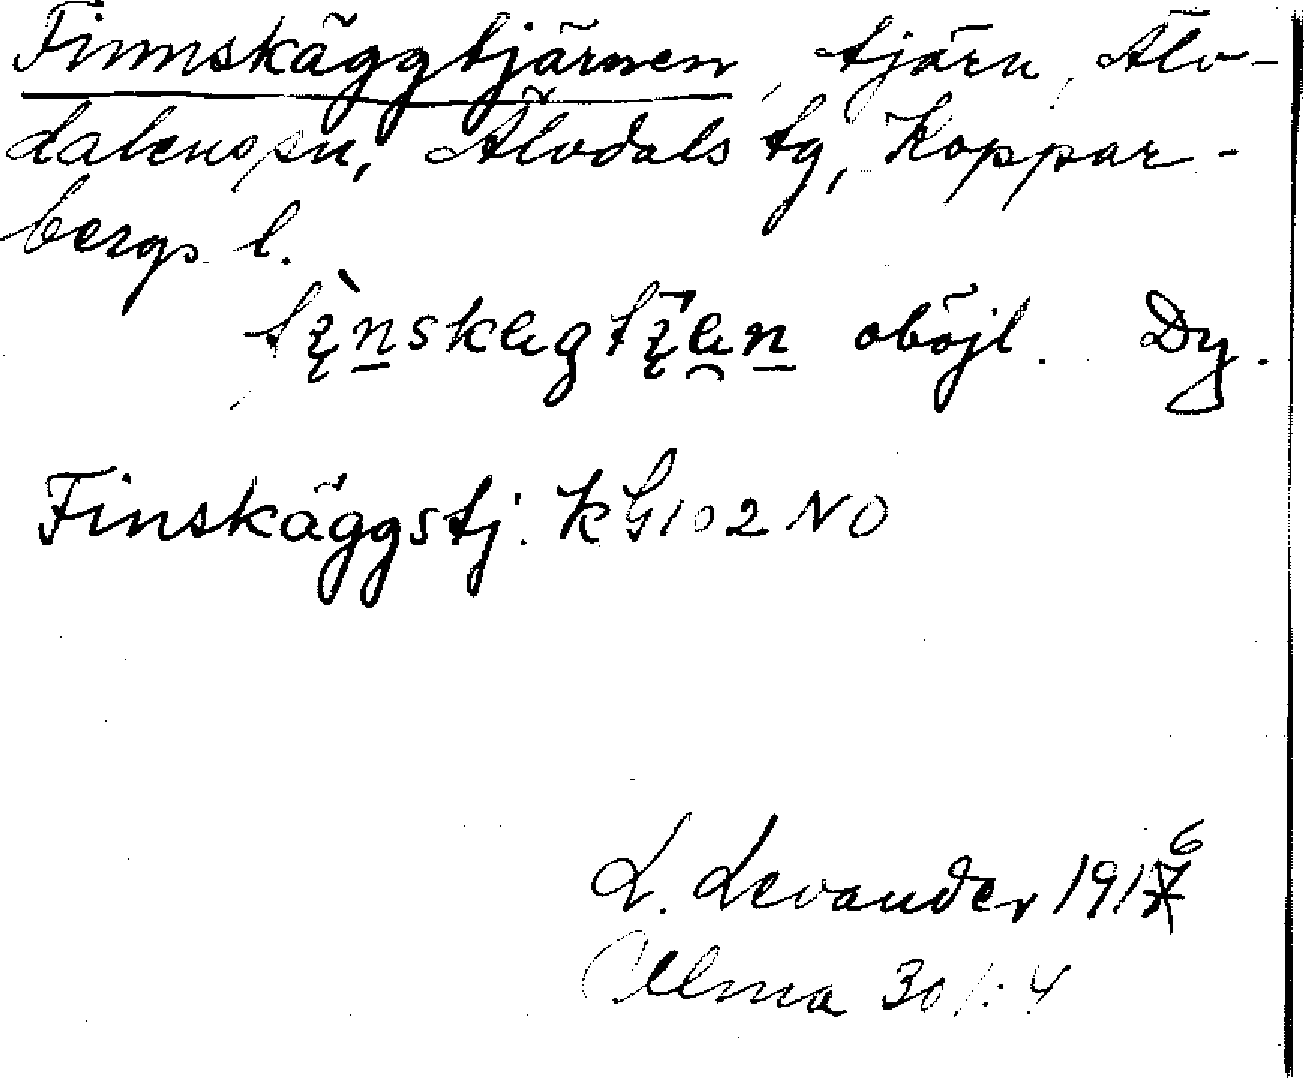 Finnskäggtjärnen, tjärn, Älv-
dalens sn, Älvdals tg, Koppar-
bergs l.
oböjl. Dy.
Finskäggstj. k bl 102 NO
L. Levander 1916
Ulma 301:4